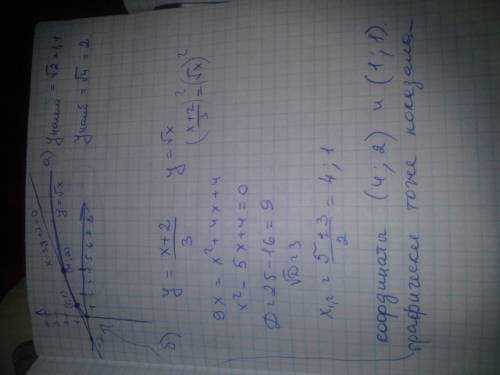 y=√x
а) Yнаим = √2 ≈ 1,4
Yнаиб = √4 = 2
б) y = \frac{x+2}{3}  y = √x
(\frac{x+2}{3})² = (√x)²
9x = x² + 4x + 4
x² - 5x + 4 = 0
D = 25 - 16 = 9
√D = 3
x₁,₂ = \frac{5 ± 3}{2} = 4 ; 1
координаты (4; 2) и (1; 1).
графически тоже показали